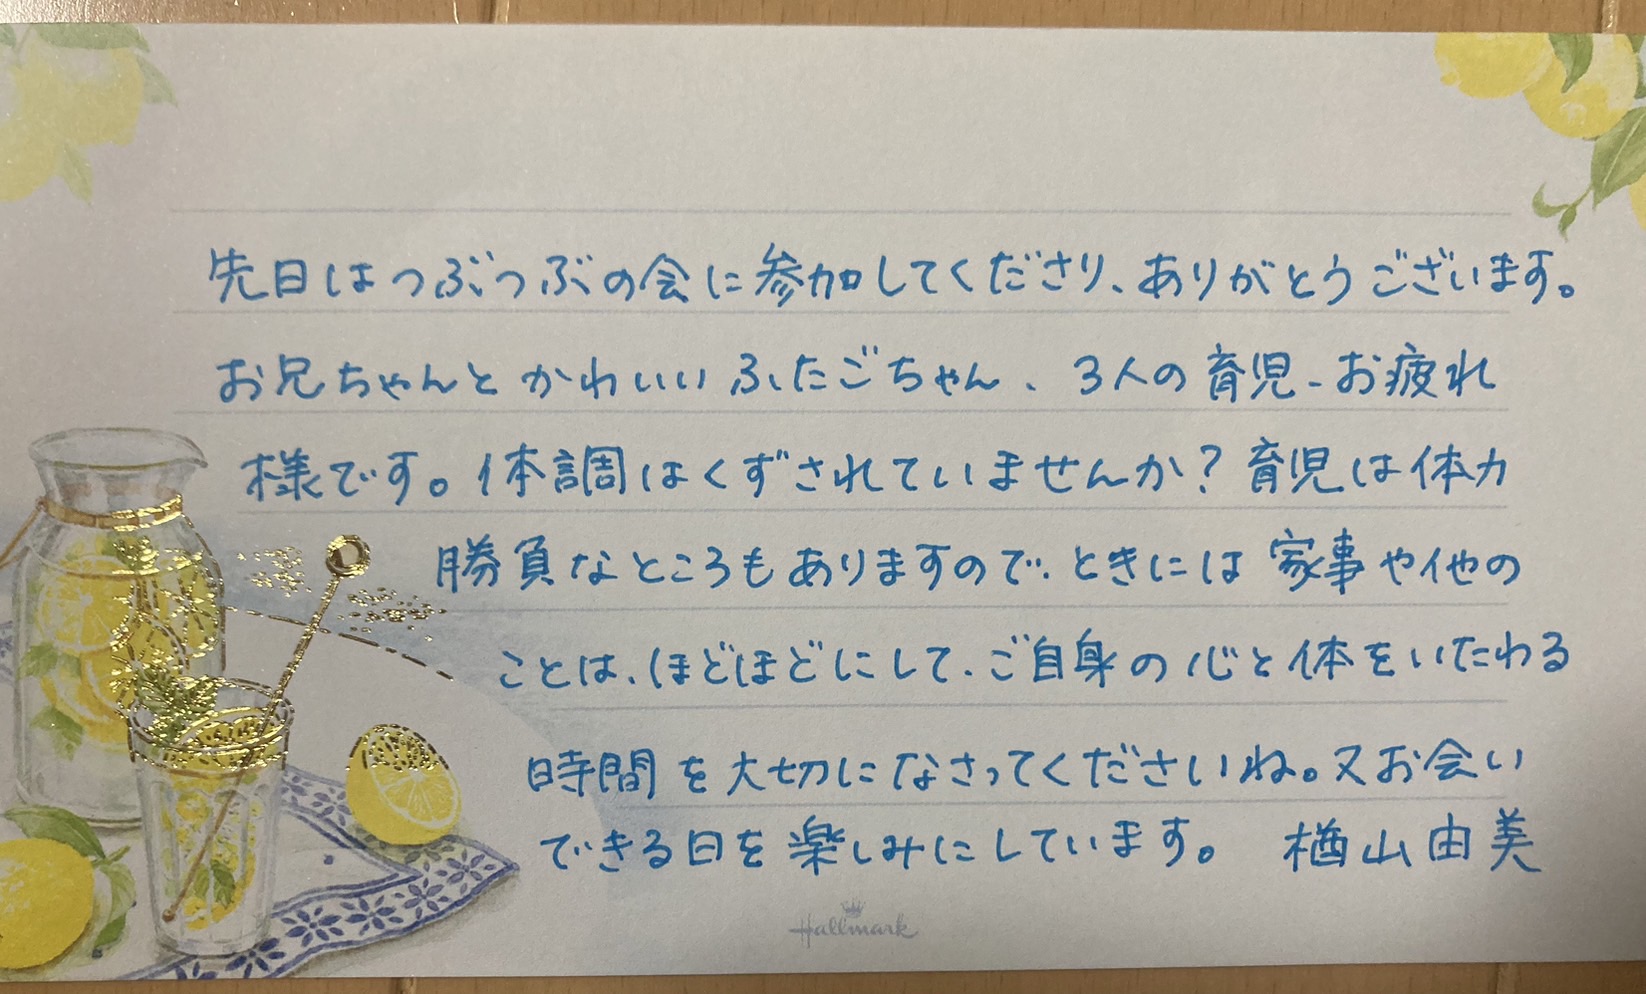 先日はつぶつぶの会に参加してくださり、ありがとうございます。
お兄ちゃんとかわいいふたごちゃん、3人の育児、お疲れ
様です。体調はくずされていませんか？育児は体力
勝負なところもありますので、ときには家事や他の
ことは、ほどほどにして、ご自身の心と体をいたわる
時間を大切になさってくださいね。又お会い
できる日を楽しみにしています。 楢山由美
Hallmark